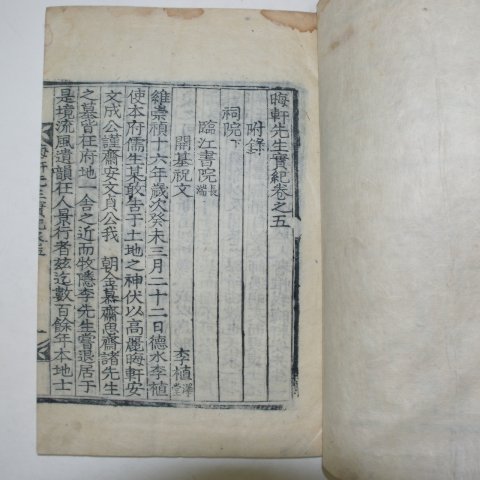 晦軒先生實紀卷之五
附錄
祠院下
臨江書院 長湍
開基祝文 李植 澤堂
維崇禎十六年歲次癸未三月二十二日德水李植
使本府儒生某敢告于土地之神伏以高麗晦軒安
文成公謹齋安文貞公我 朝金慕齋思齋諸先生
之墓皆在府地一舍之近而牧隱李先生嘗退居于
是境流風遺韻在人景行者玆迄數百餘年本地士
晦軒先生實紀卷五